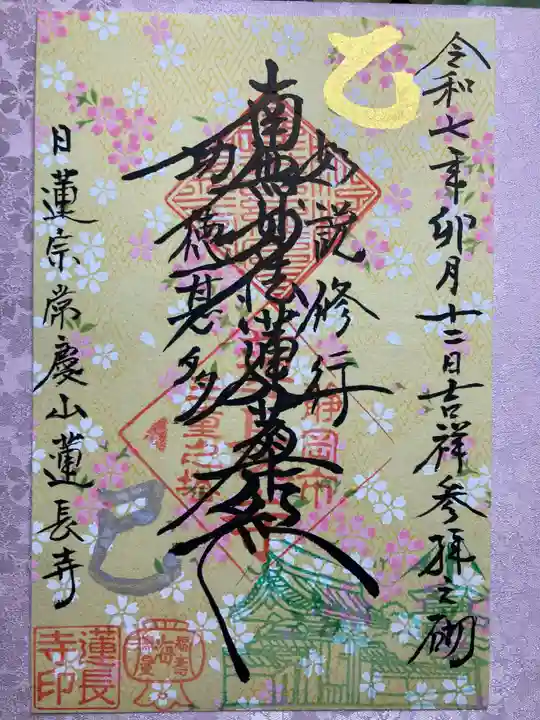 乙
令和七年卯月十二日吉祥参拝之砌
如説修行
南無妙法蓮華経
功徳甚多
静岡市
巳
日蓮宗常慶山蓮長寺
蓮長寺印